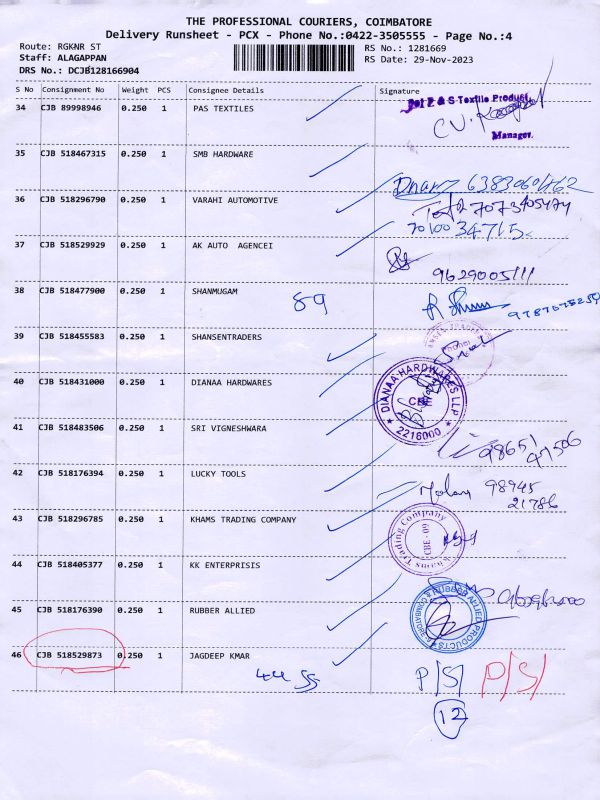 THE PROFESSIONAL COURIERS, COIMBATORE
Delivery Runsheet - PCX - Phone No.:0422-3505555 - Page No.:4
Route: RGKNR ST
RS No.: 1281669
Staff: ALAGAPPAN
RS Date: 29-Nov-2023
DRS No.: DCJB128166904
S No Consignment No Weight PCS Consignee Details Signature
34 CJB 89998946 0.250 1 PAS TEXTILES
& S Textile Product
Manager.
35 CJB 518467315 0.250 1 SMB HARDWARE
36 CJB 518296790 0.250 1 VARAHI AUTOMOTIVE
37 CJB 518529929 0.250 1 AK AUTO AGENCEI
9629005111
38 CJB 518477900 0.250 1 SHANMUGAM 89
39 CJB 518455583 0.250 1 SHANSENTRADERS
40 CJB 518431000 0.250 1 DIANAA HARDWARES
DIANAA HARDWARES LLP
CBE
2216000
41 CJB 518483506 0.250 1 SRI VIGNESHWARA
98651
97506
42 CJB 518176394 0.250 1 LUCKY TOOLS
98945
21786
43 CJB 518296785 0.250 1 KHAMS TRADING COMPANY
Khams Trading Company
CBE - 09
44 CJB 518405377 0.250 1 KK ENTERPRISIS
45 CJB 518176390 0.250 1 RUBBER ALLIED
RUBBER ALLIED PRODUCTS
46 CJB 518529873 0.250 1 JAGDEEP KMAR
P/S/ P/S/
12